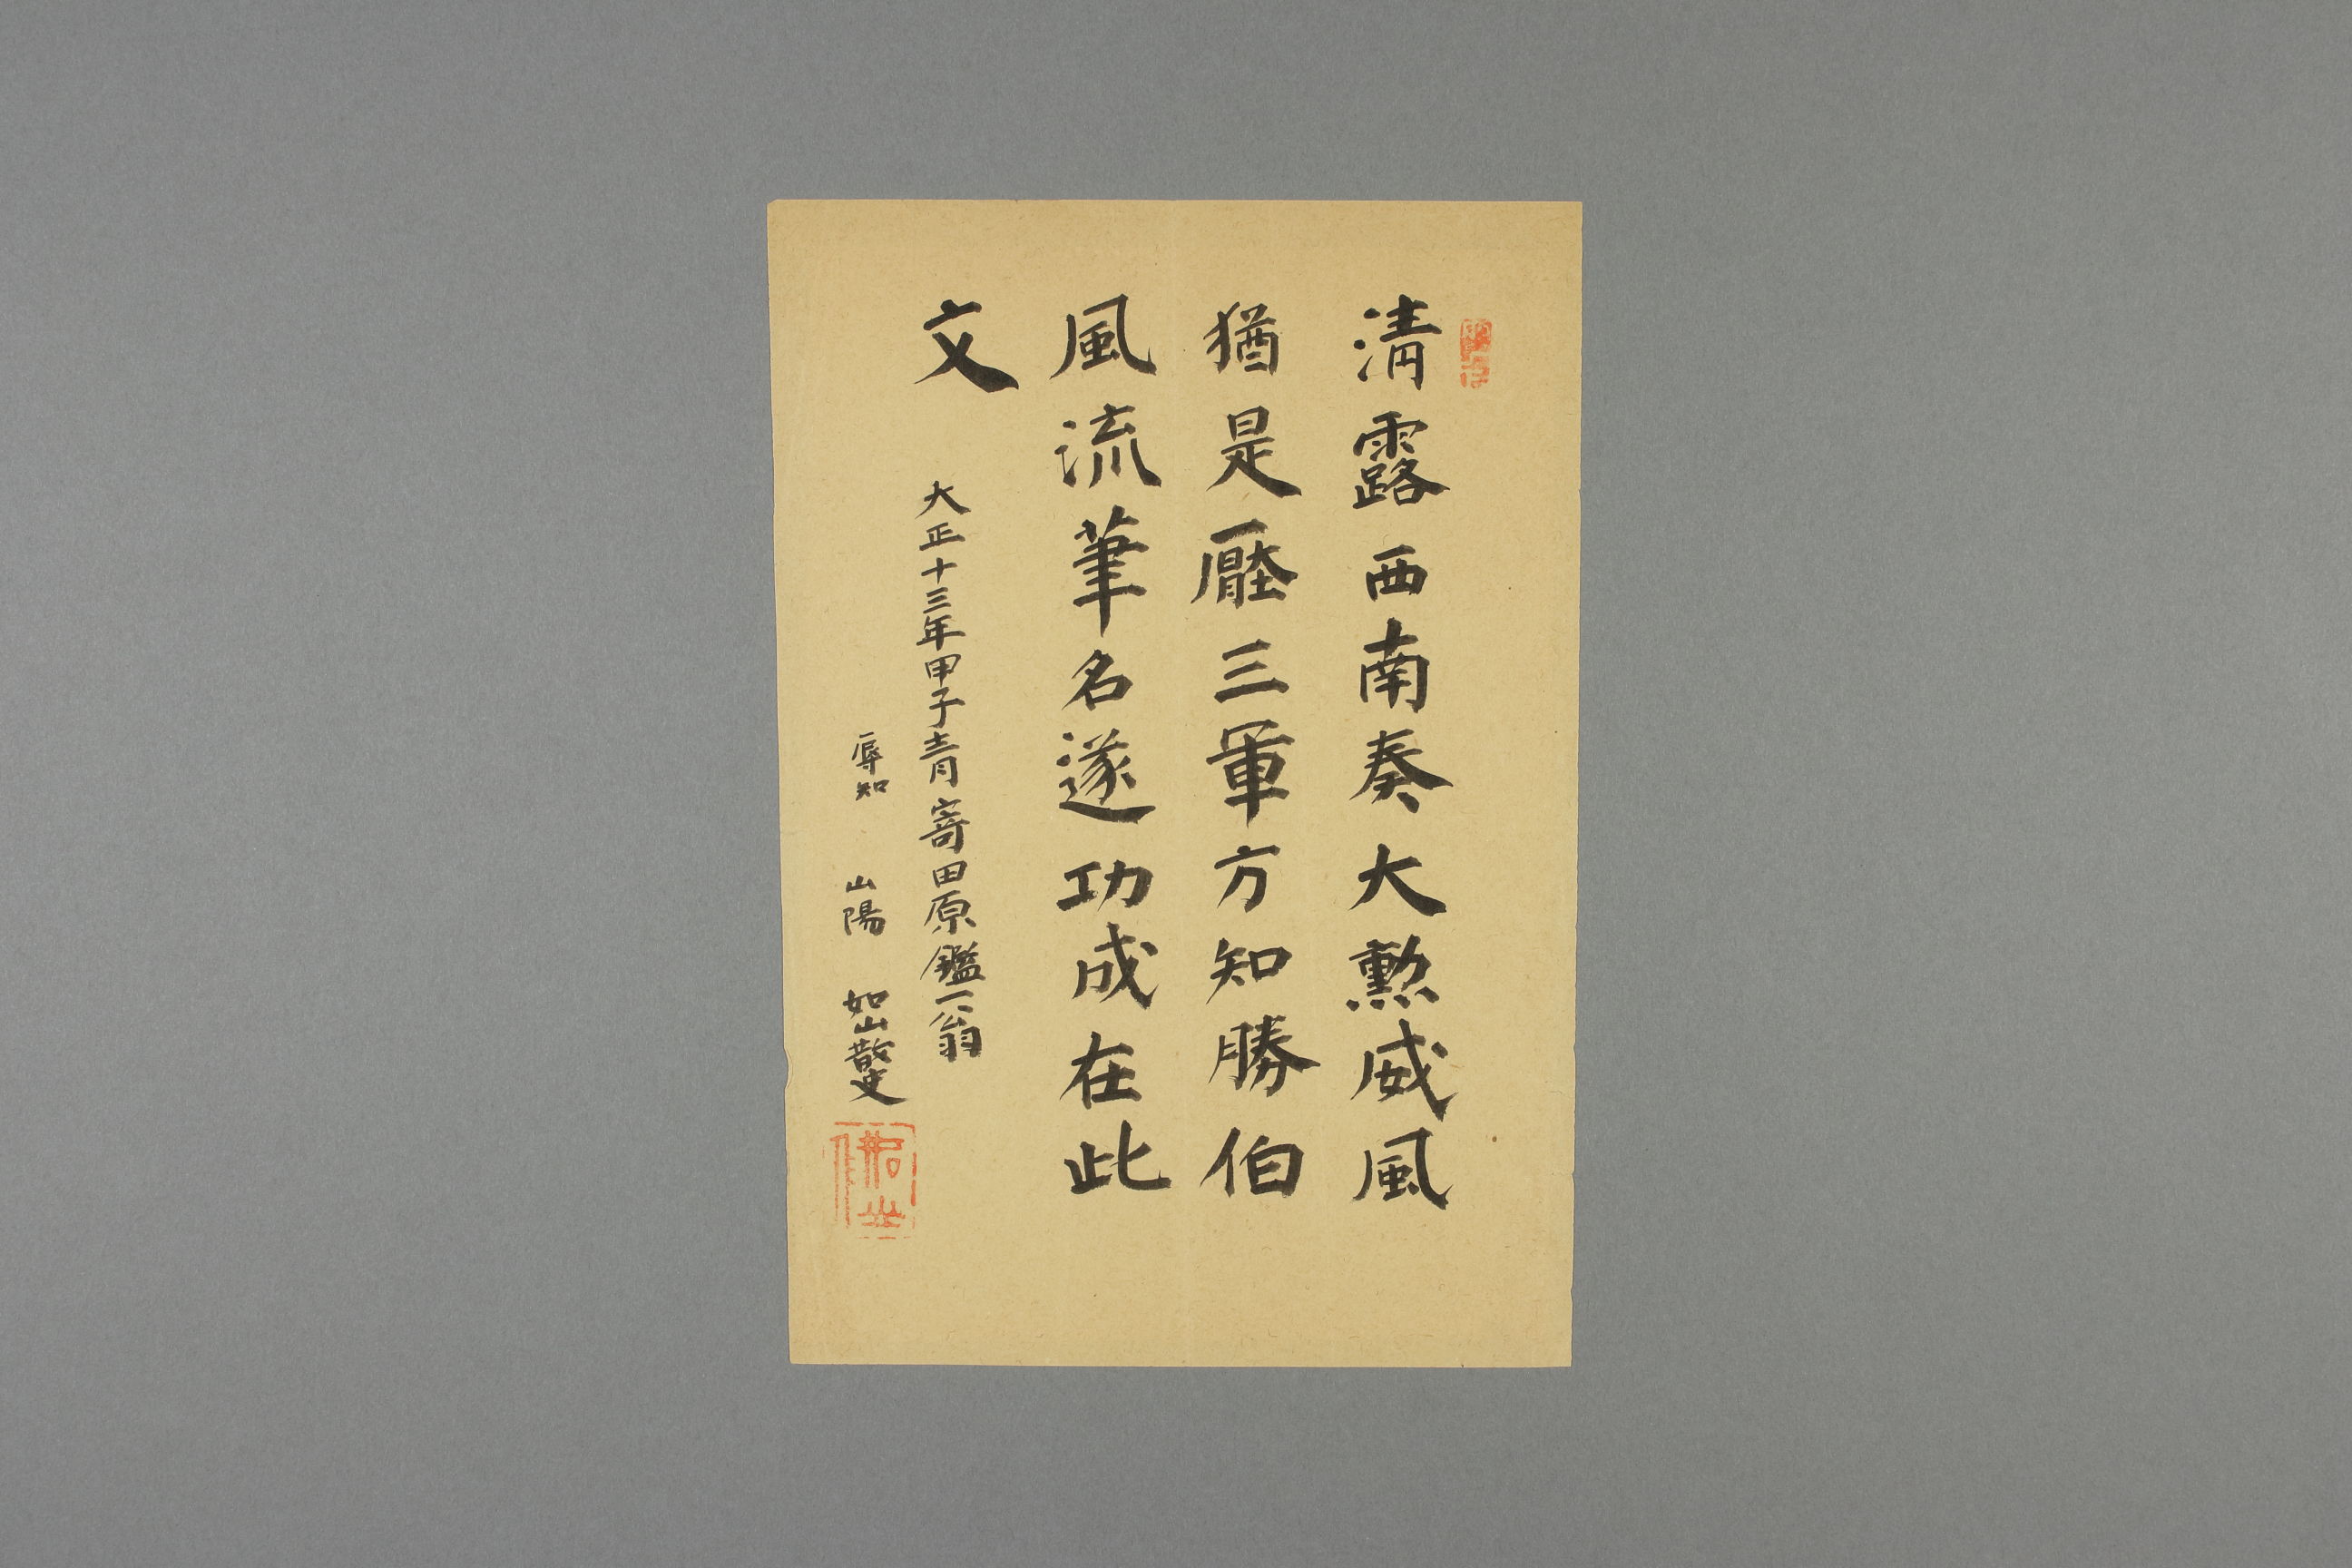 清露西南奏大勲威風
猶是壓三軍方知勝伯
風流筆名遂功成在此
文
大正十三年甲子青寄田原鑑一翁
辱知 山陽 如山散史